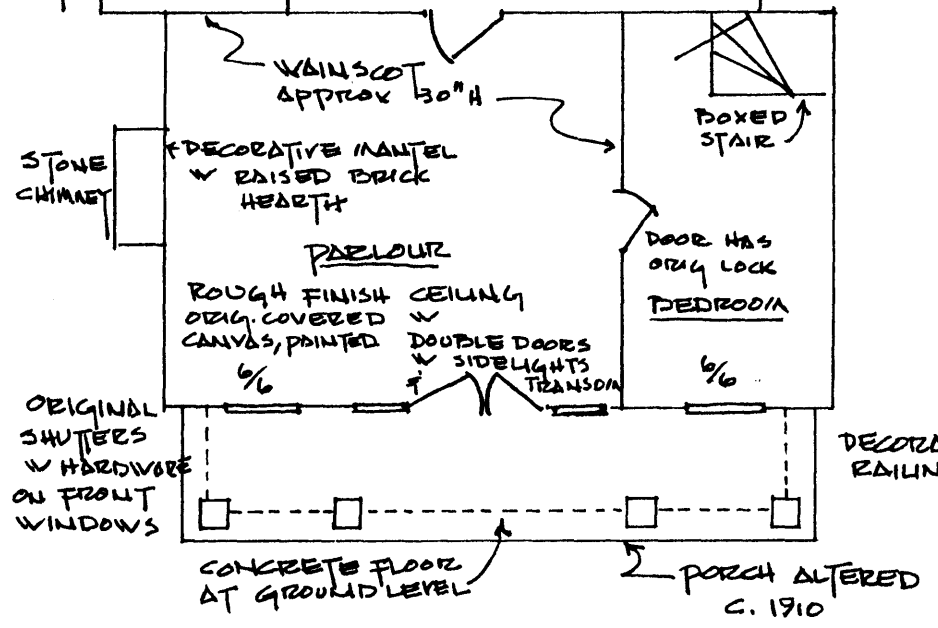 WAINSCOT
APPROX 30" H
BOXED
STAIR
STONE
CHIMNEY
DECORATIVE MANTEL
W RAISED BRICK
HEARTH
PARLOUR
DOOR HAS
ORIG LOCK
BEDROOM
ROUGH FINISH CEILING
ORIG. COVERED W
CANVAS, PAINTED
DOUBLE DOORS
W SIDELIGHTS
& TRANSOM
6/6
6/6
ORIGINAL
SHUTTERS
W HARDWARE
ON FRONT
WINDOWS
DECORA
RAILIN
CONCRETE FLOOR
AT GROUND LEVEL
PORCH ALTERED
C. 1910